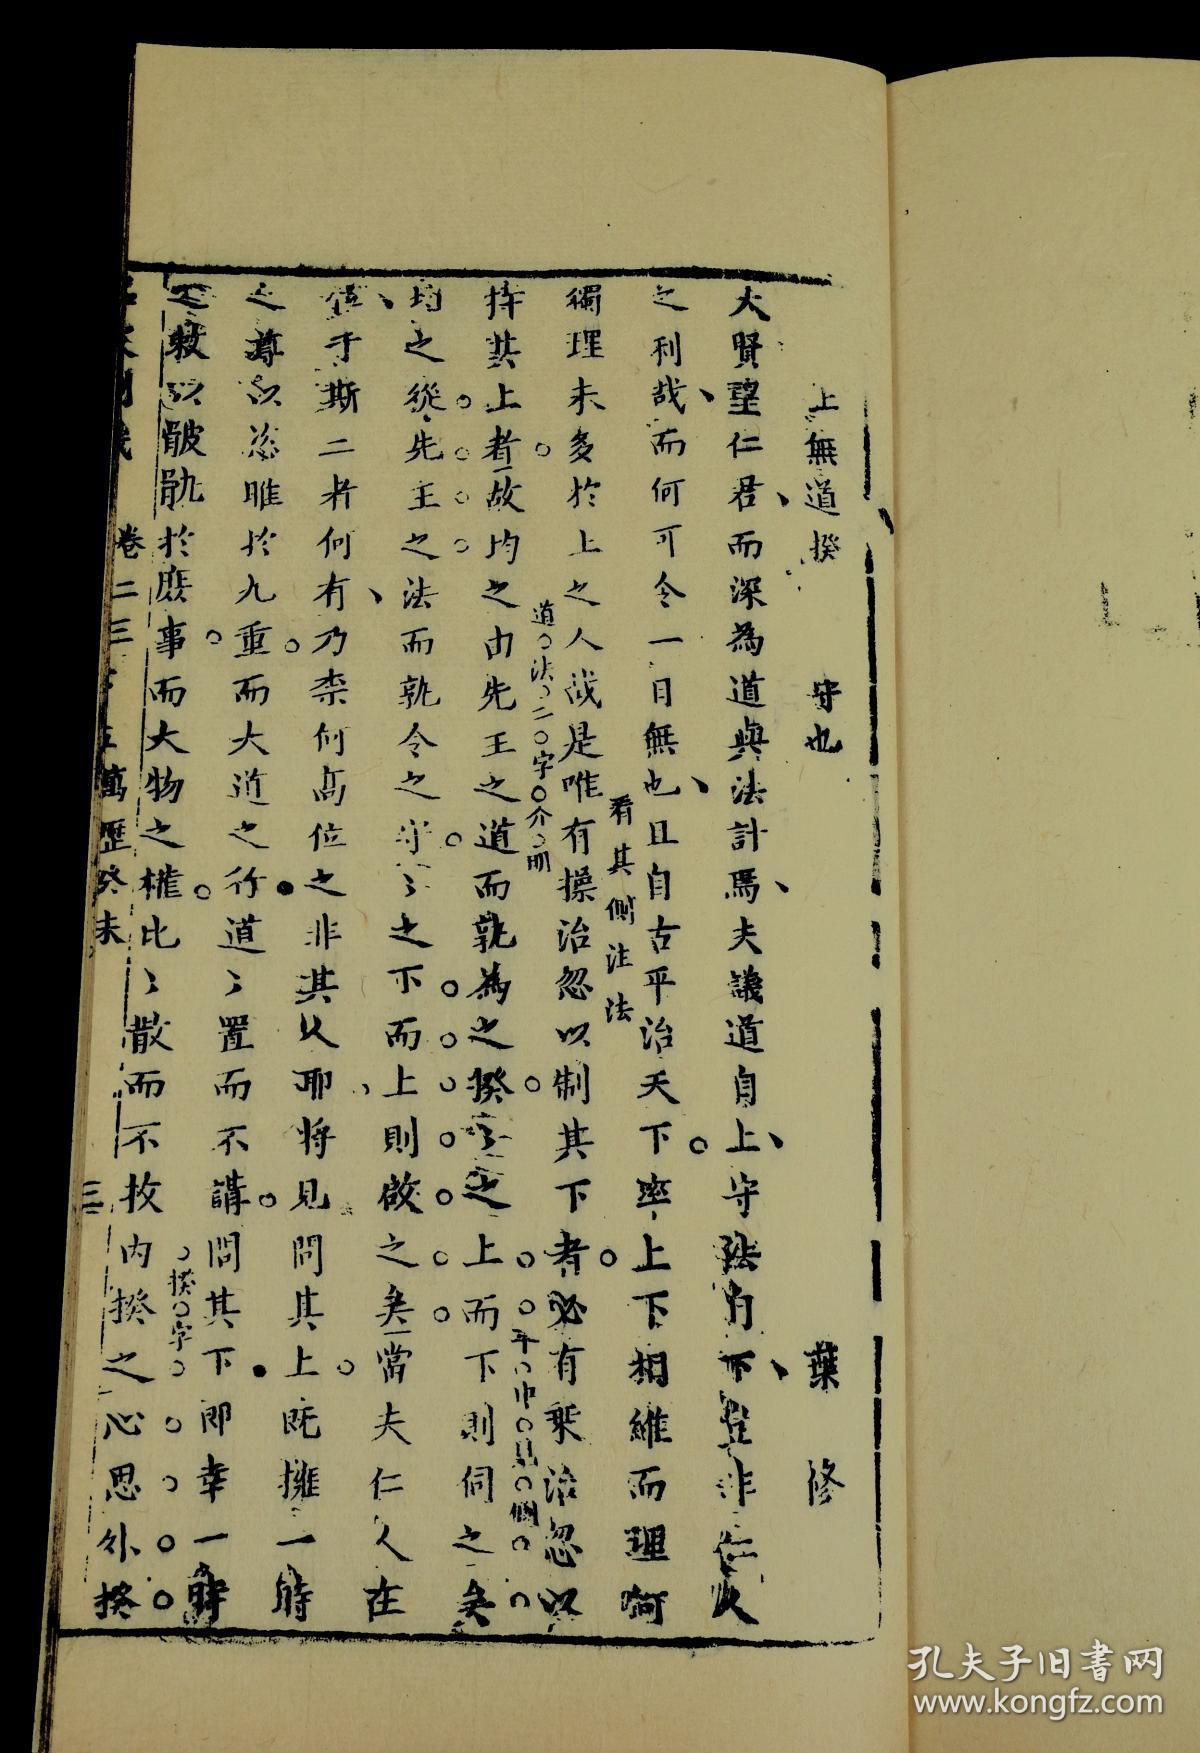 上無道揆　守也　葉修
大賢望仁君而深為道與法計焉夫議道自上守法自下豈非仁人
之利哉而何可令一日無也且自古平治天下率上下相維而理何
看其側注法
獨理未多於上之人哉是唯有操治忽以制其下者必有乘治忽以
道法二字介明
平中見側
持其上者故均之由先王之道而孰為之揆揆之上而下則伺之矣
均之從先王之法而孰令之守守之下而上則啟之矣當夫仁人在
位于斯二者何有乃柰何高位之非其人耶將見問其上旣擁一時
之尊以恣睢於九重而大道之行道道置而不講問其下即幸一時
之敕以骳骫於庶事而大物之權比比散而不收內揆之心思外揆
揆字
卷二三　萬歷癸未　三
孔夫子旧書网
www.kongfz.com